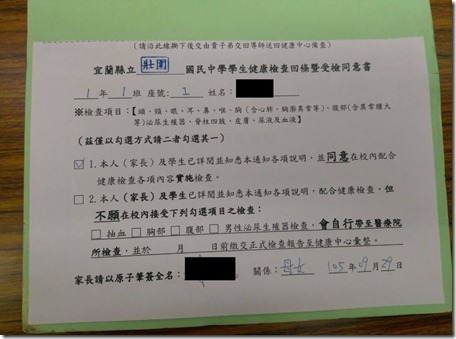 (請沿此線撕下後交由貴子弟交回導師送回健康中心備查)
宜蘭縣立 壯圍 國民中學學生健康檢查回條暨受檢同意書
1 年 1 班 座號: 1 姓名:
※檢查項目:【頭、頸、眼、耳、鼻、喉、胸(含心肺、胸廓異常等)、腹部(含異常腫大
等)泌尿生殖器、脊柱四肢、皮膚、尿液及血液】
(茲僅以勾選方式請二者勾選其一)
☑ 1.本人(家長)及學生已詳閱並知悉本通知各項說明,並同意在校內配合
健康檢查各項內容實施檢查。
□ 2.本人(家長)及學生已詳閱並知悉本通知各項說明,配合健康檢查,但
不願在校內接受下列勾選項目之檢查:
□ 抽血 □ 胸部 □ 腹部 □ 男性泌尿生殖器檢查,會自行帶至醫療院
所檢查,並於 月 日前繳交正式檢查報告至健康中心彙整。
家長請以原子筆簽全名: 關係: 母女 105 年 09 月 29 日